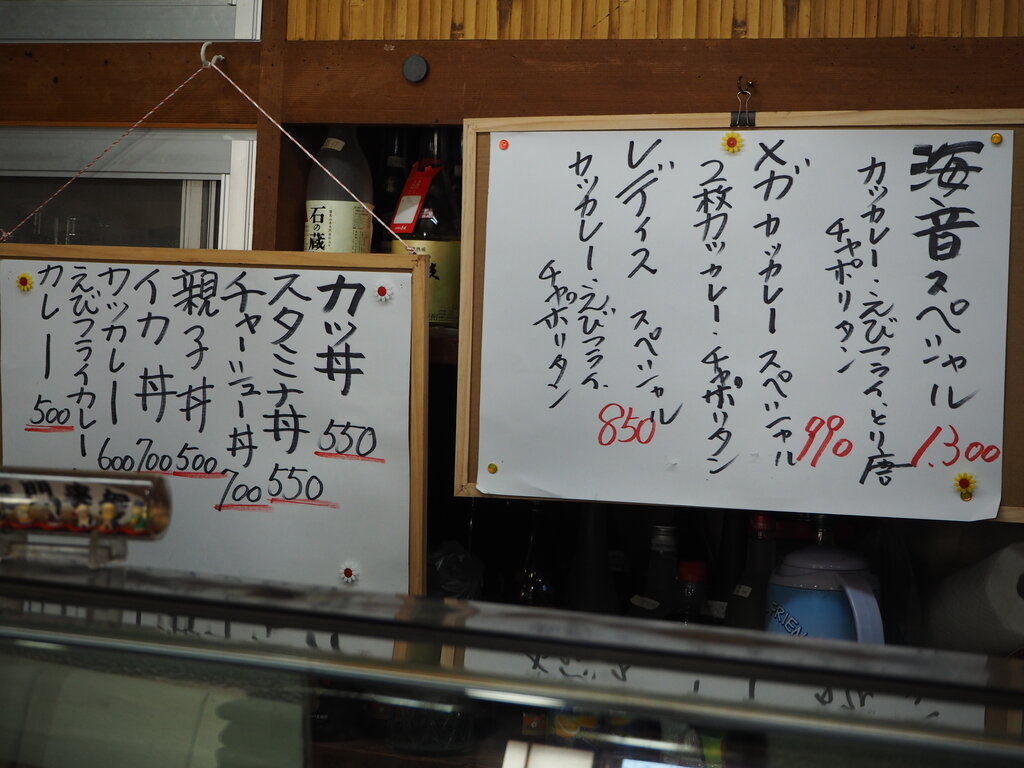 海音スペシャル 1.300
カツカレー・えびフライ、とり唐
チャポリタン
メガカツカレースペシャル 990
2枚カツカレー・チャポリタン
レディススペシャル 850
カツカレー・えびフライ、
チャポリタン
カツ丼 550
スタミナ丼 550
チャーシュー丼 700
親子丼 500
イカ丼 700
カツカレー 600
えびフライカレー
カレー 500
石の蔵
FRIEN